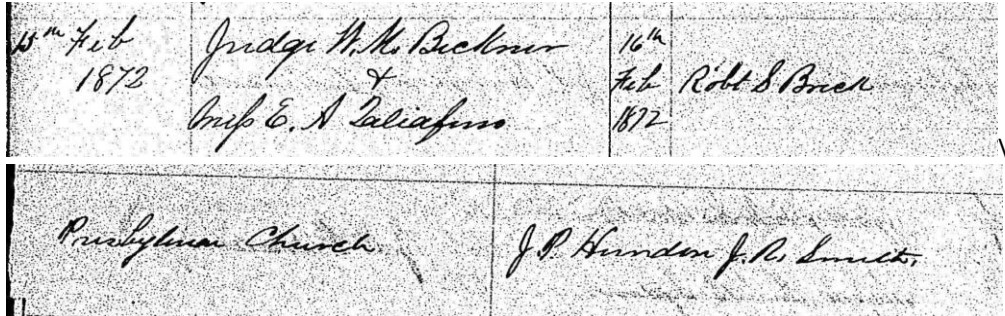 15th Feb
1872
Judge W. M. Beckner
&
Miss E. A Taliaferro
16th
Feb
1872
Robt S Breck
Presbyterian Church
J. P. Herndon J. R. Smith.